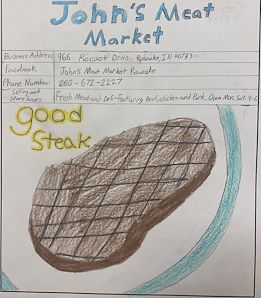 John's Meat
Market
Business Address 966 Roanoke Drive Roanoke, IN 46783
Facebook John's Meat Market Roanoke
Phone Number 260-672-2227
Selling and Store hours Fresh Meat and Deli-Featuring Beef, chicken and Pork, Open Mon.-Sat: 9-6
good
Steak